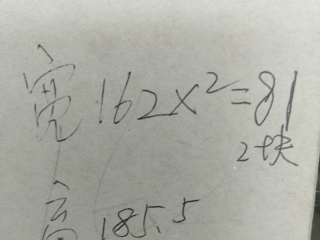 宽162x2=81
2块
高185.5